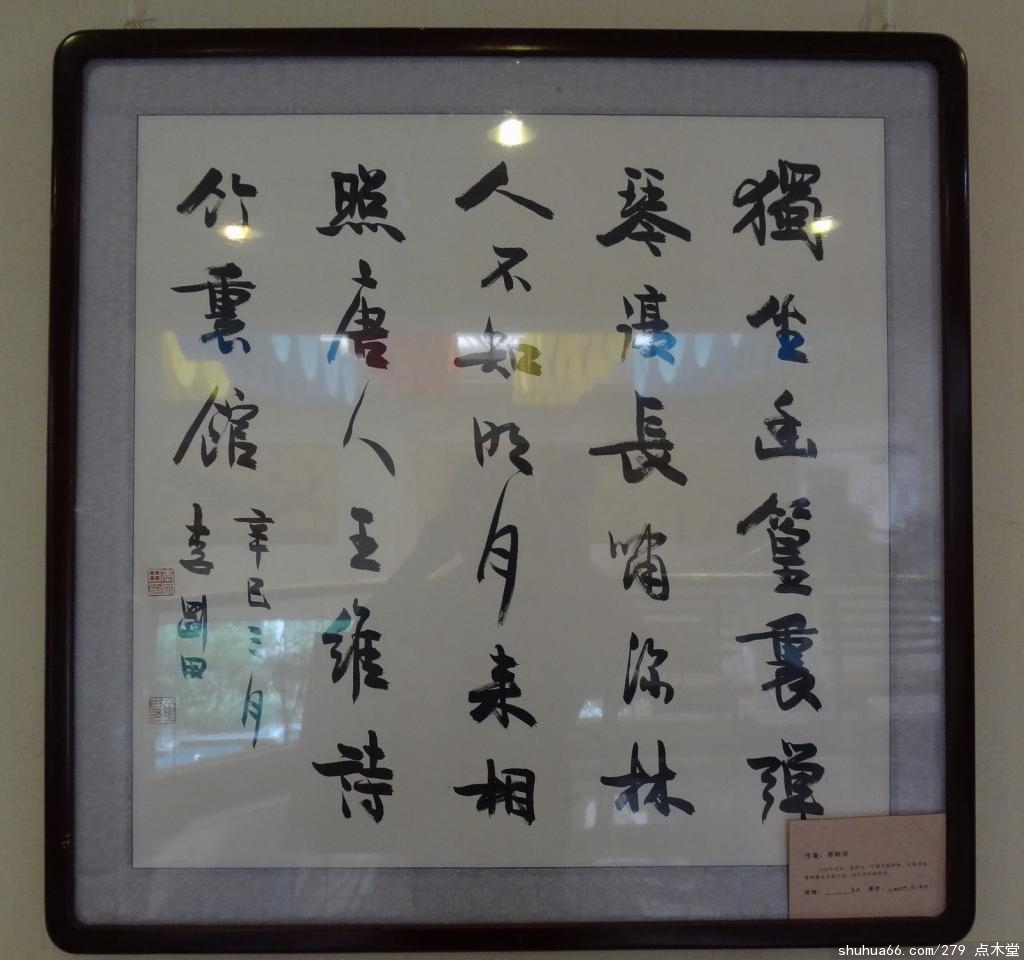 獨坐幽篁裏彈
琴復長嘯深林
人不知明月來相
照唐人王維詩
竹裏館
辛巳三月
李剛田
shuhua66.com/279 点木堂